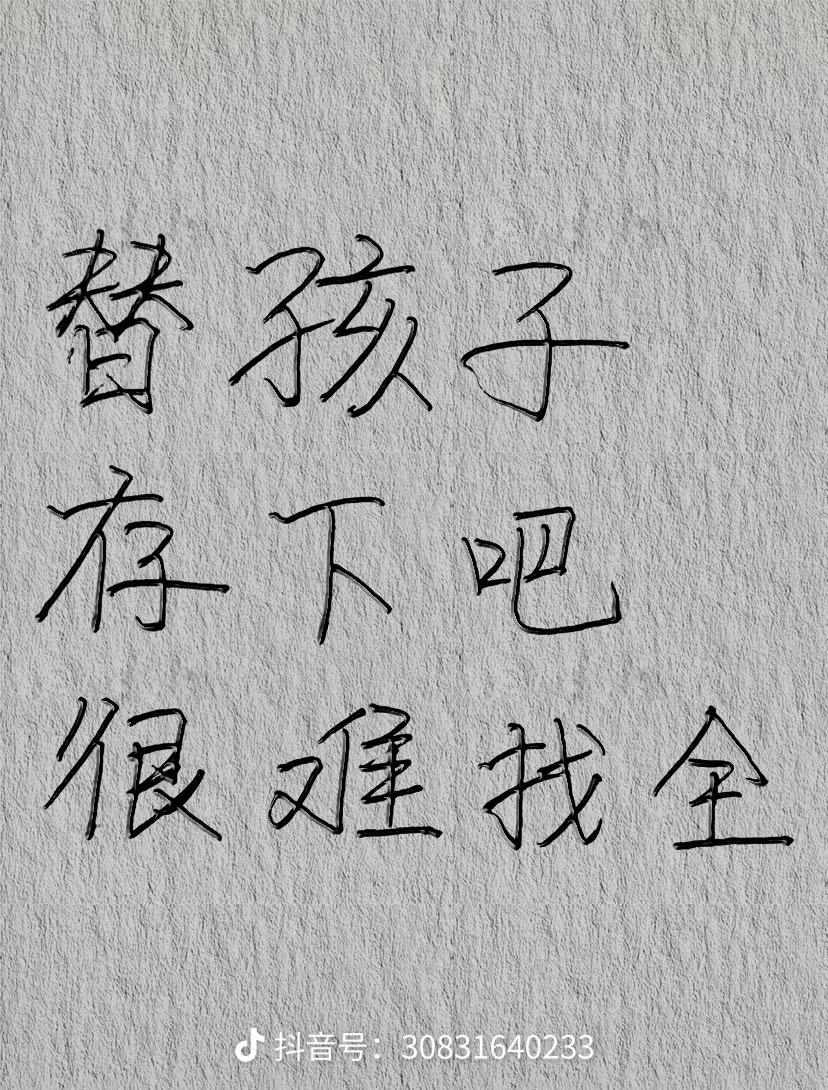 替孩子
存下吧
很难找全
抖音号：30831640233